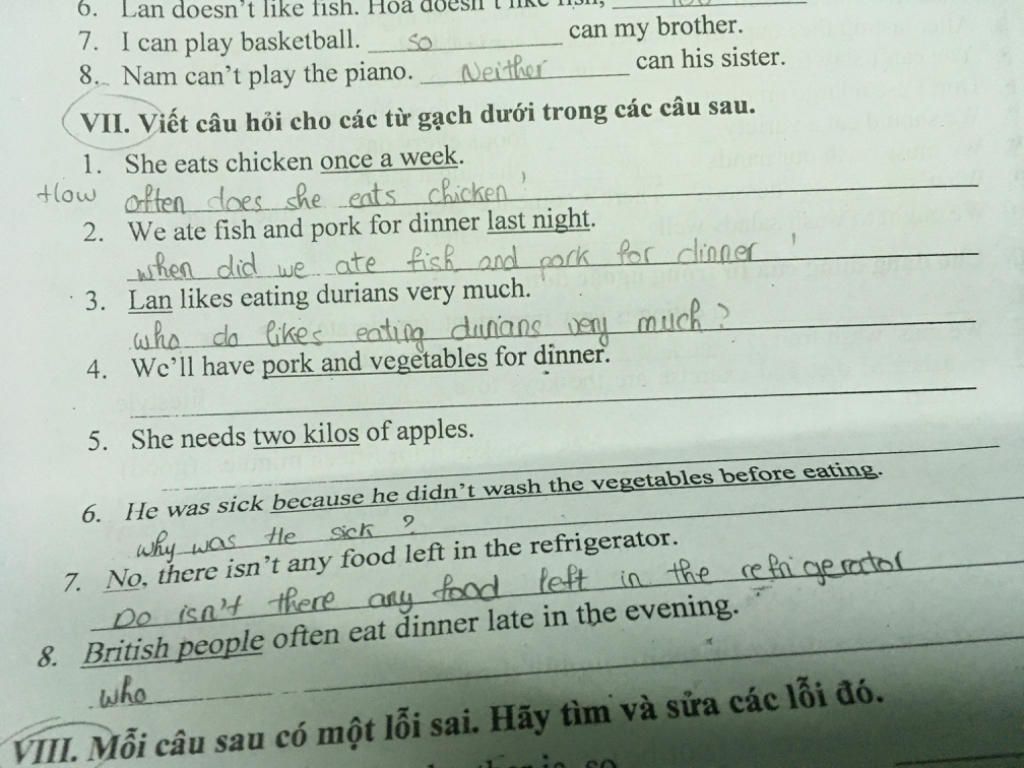 6. Lan doesn't like fish. Hoa doesn't like fish,
7. I can play basketball. so can my brother.
8. Nam can't play the piano. Neither can his sister.
VII. Viết câu hỏi cho các từ gạch dưới trong các câu sau.
1. She eats chicken once a week.
How often does she eats chicken
2. We ate fish and pork for dinner last night.
when did we ate fish and pork for dinner
3. Lan likes eating durians very much.
who do likes eating durians very much?
4. We'll have pork and vegetables for dinner.
5. She needs two kilos of apples.
6. He was sick because he didn't wash the vegetables before eating.
why was He sick?
7. No, there isn't any food left in the refrigerator.
Do isn't there any food left in the refrigerator
8. British people often eat dinner late in the evening.
who
VIII. Mỗi câu sau có một lỗi sai. Hãy tìm và sửa các lỗi đó.